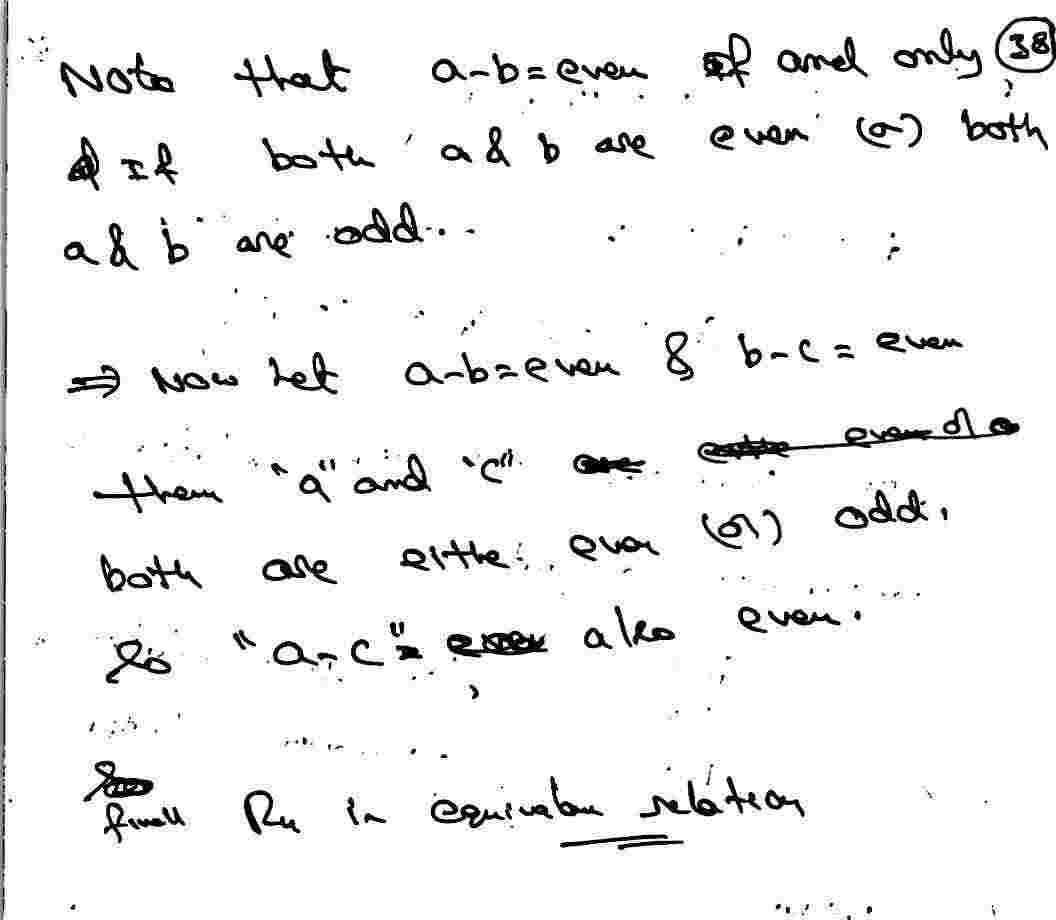 Note that a-b=even if and only 38
if both a & b are even (or) both
a & b are odd...
⇒ Now Let a-b=even & b-c = even
then "a" and "c"
both are either even (or) odd.
So "a-c" = also even.
R4 in equivalen relation